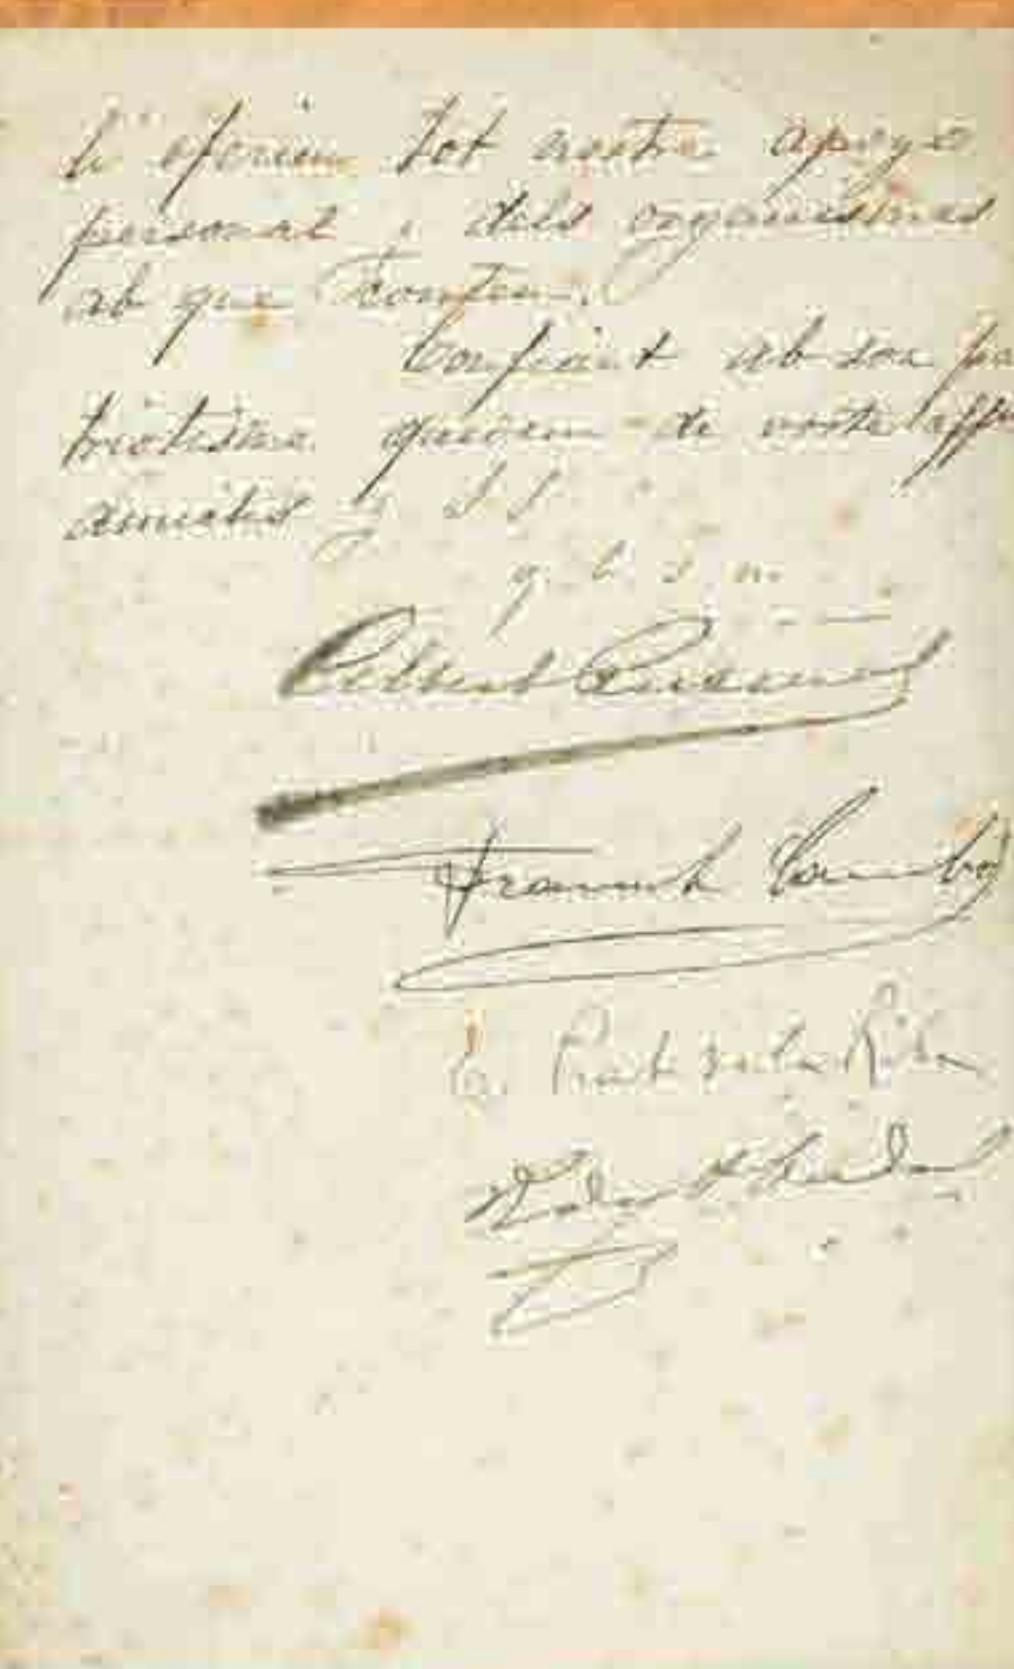 li oferim tot nostre apoyo
personal i dels organismes
ab que contem.
Confiant ab son pa
triotisme quedem de vostè affm
amichs y S S
q. b. s. m.
Albert Rusiñol
Francesch Cambó
E. Prat de la Riba